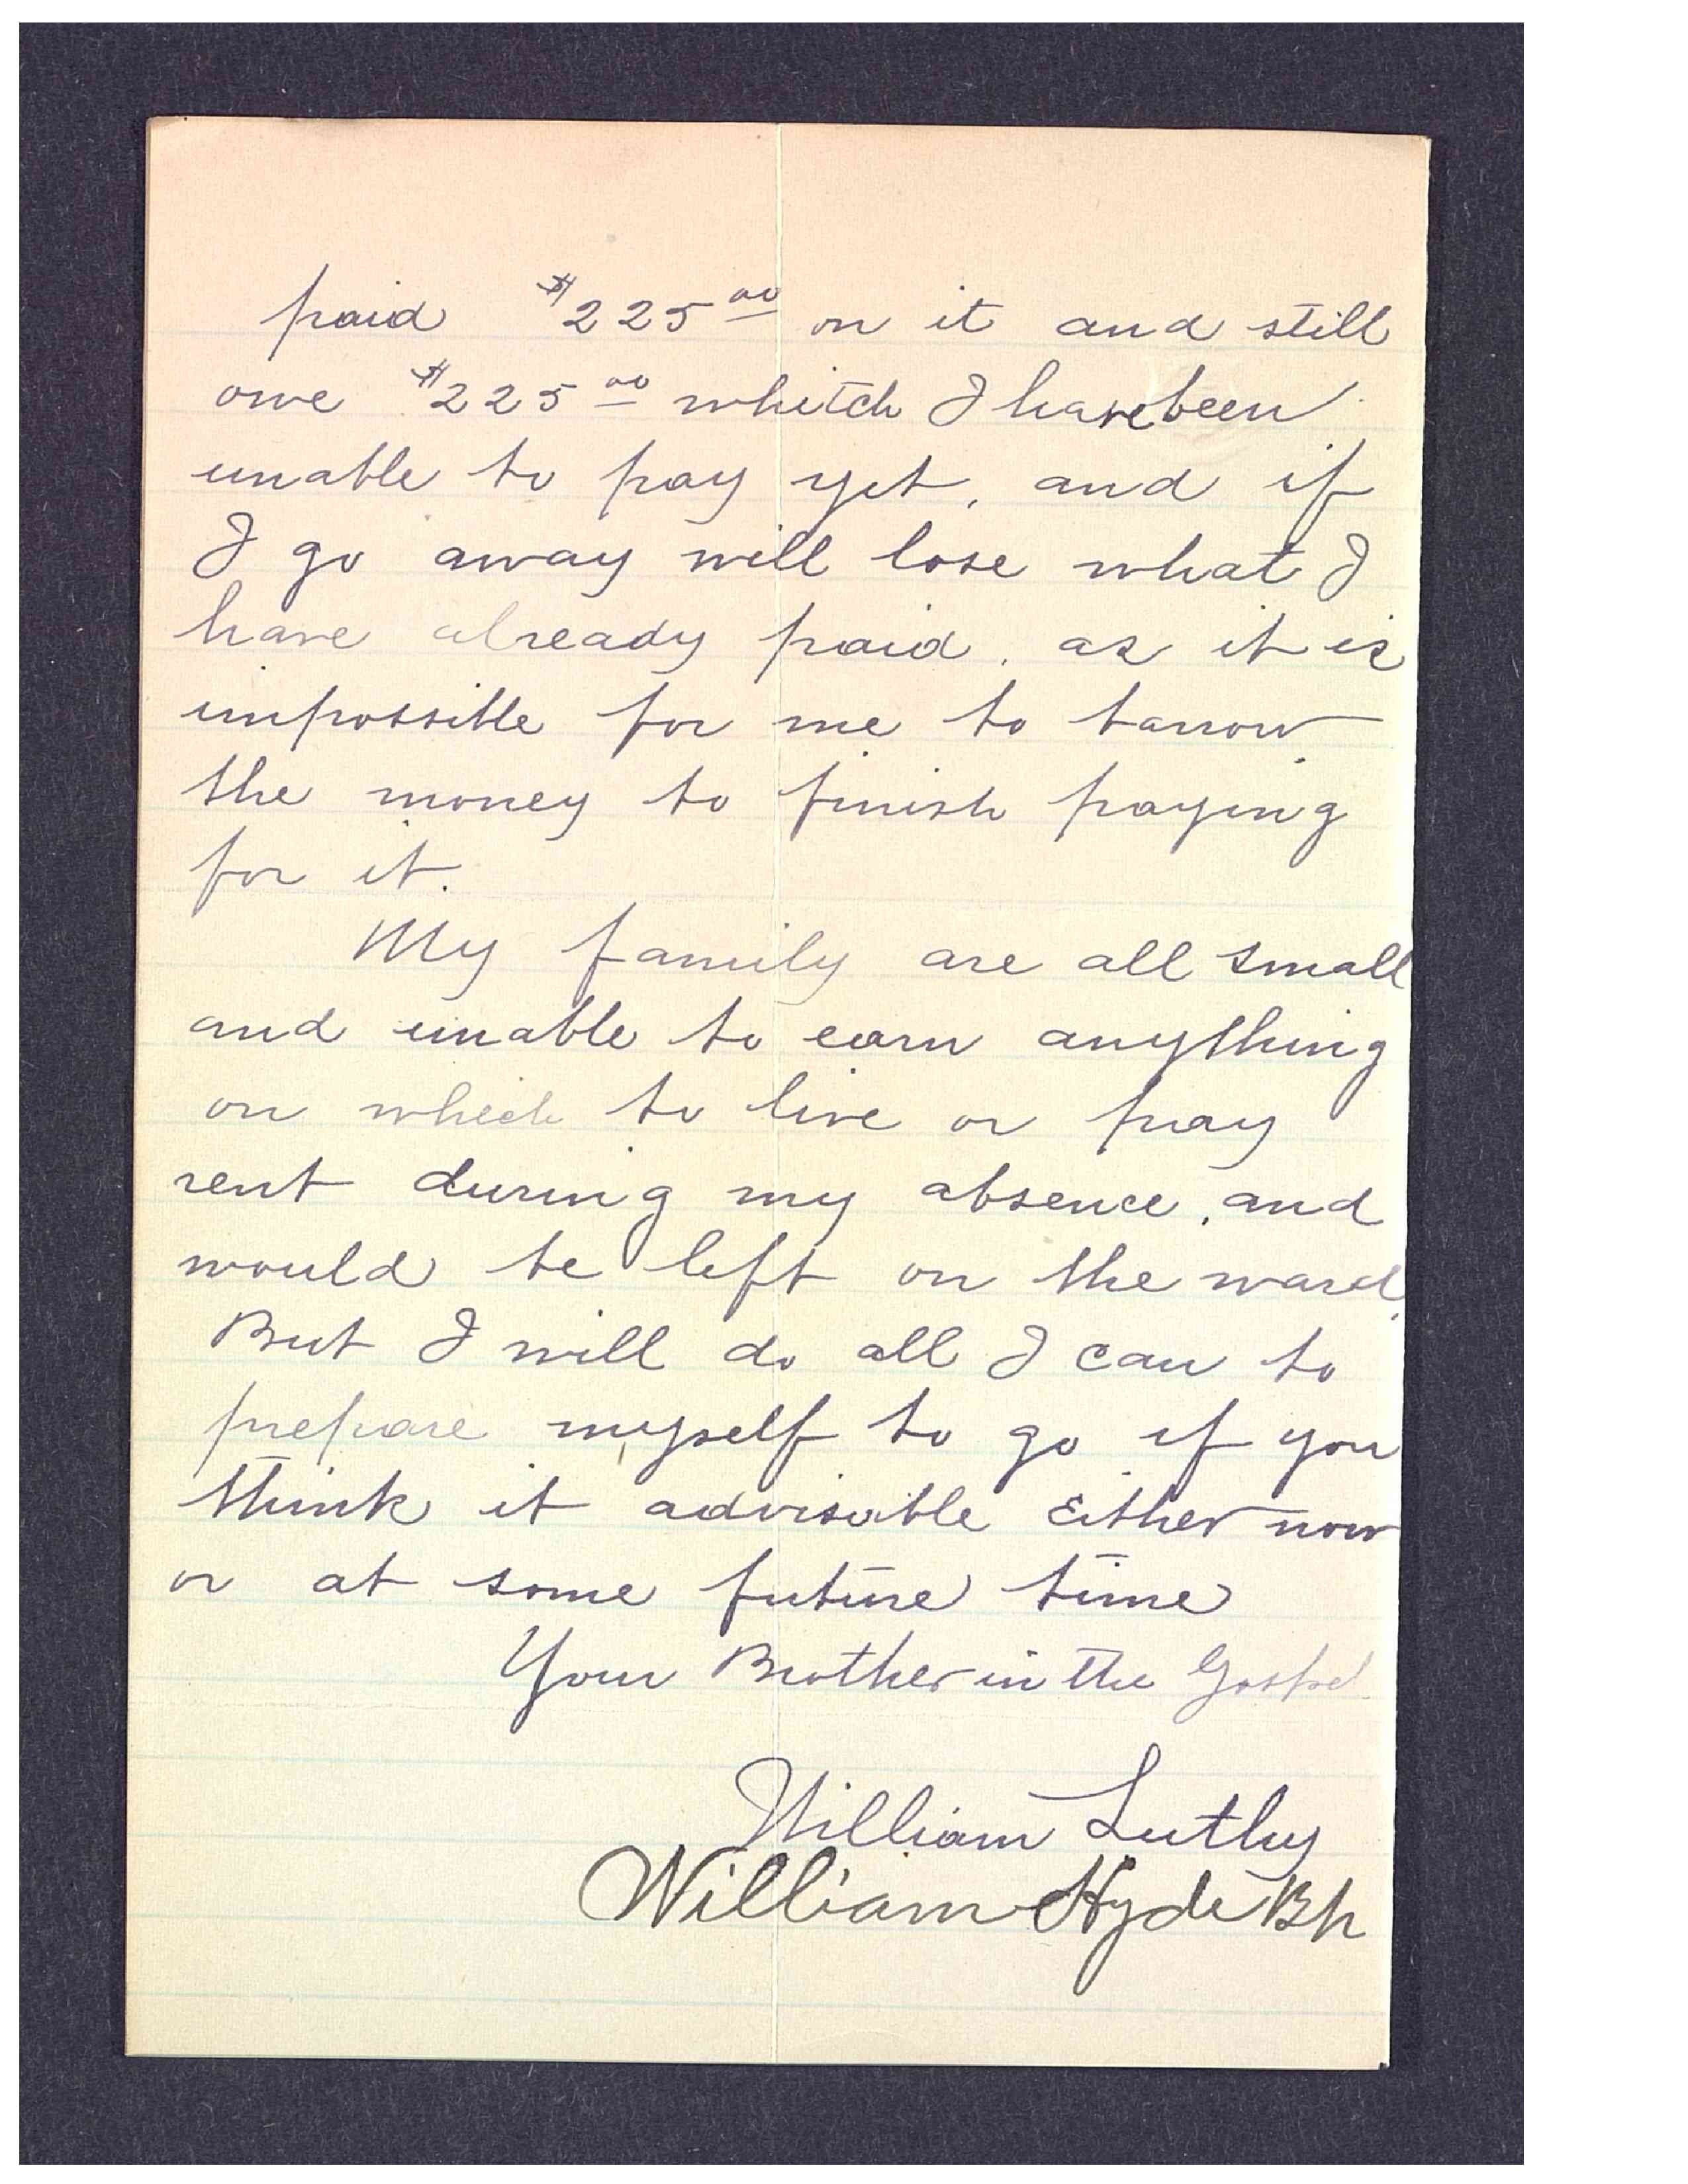 paid $225.00 on it and still
owe $225.00 whitch I have been
unable to pay yet, and if
I go away will lose what I
have already paid, as it is
impossible for me to barrow
the money to finish paying
for it.
My family are all small
and unable to earn anything
on which to live or pay
rent during my absence, and
would be left on the ward.
But I will do all I can to
prepare myself to go if you
think it advisable Either now
or at some future time
Your Brother in the Gospel
William Luthy
William Hyde Bp